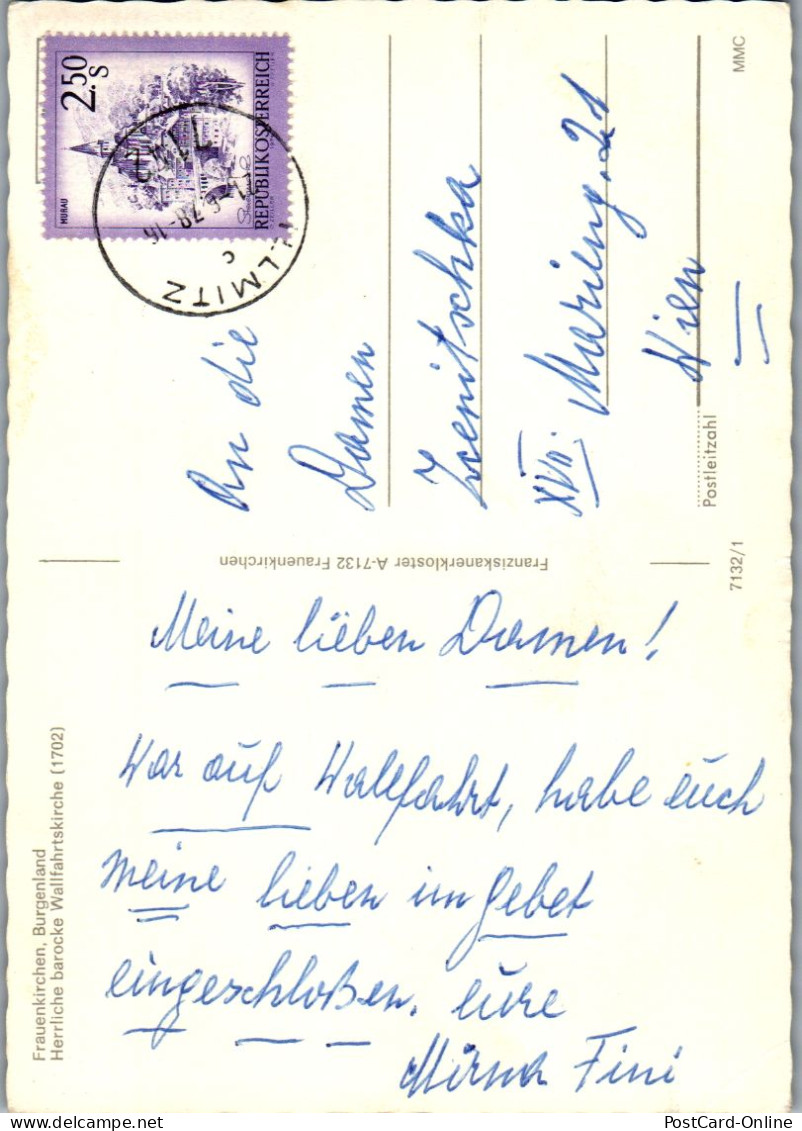 2.50
S
REPUBLIK ÖSTERREICH
MURAU
7142
-6.78-16
c
ILLMITZ
MMC
An die
Damen
Zwenitschka
XVII. Marieng. 21
Wien
Postleitzahl
Franziskanerkloster A-7132 Frauenkirchen
7132/1
Frauenkirchen, Burgenland
Herrliche barocke Wallfahrtskirche (1702)
Meine lieben Damen!
War auf Wallfahrt, habe euch
meine lieben im Gebet
eingeschloßen. eure
Mirna Fini
PostCard-Online